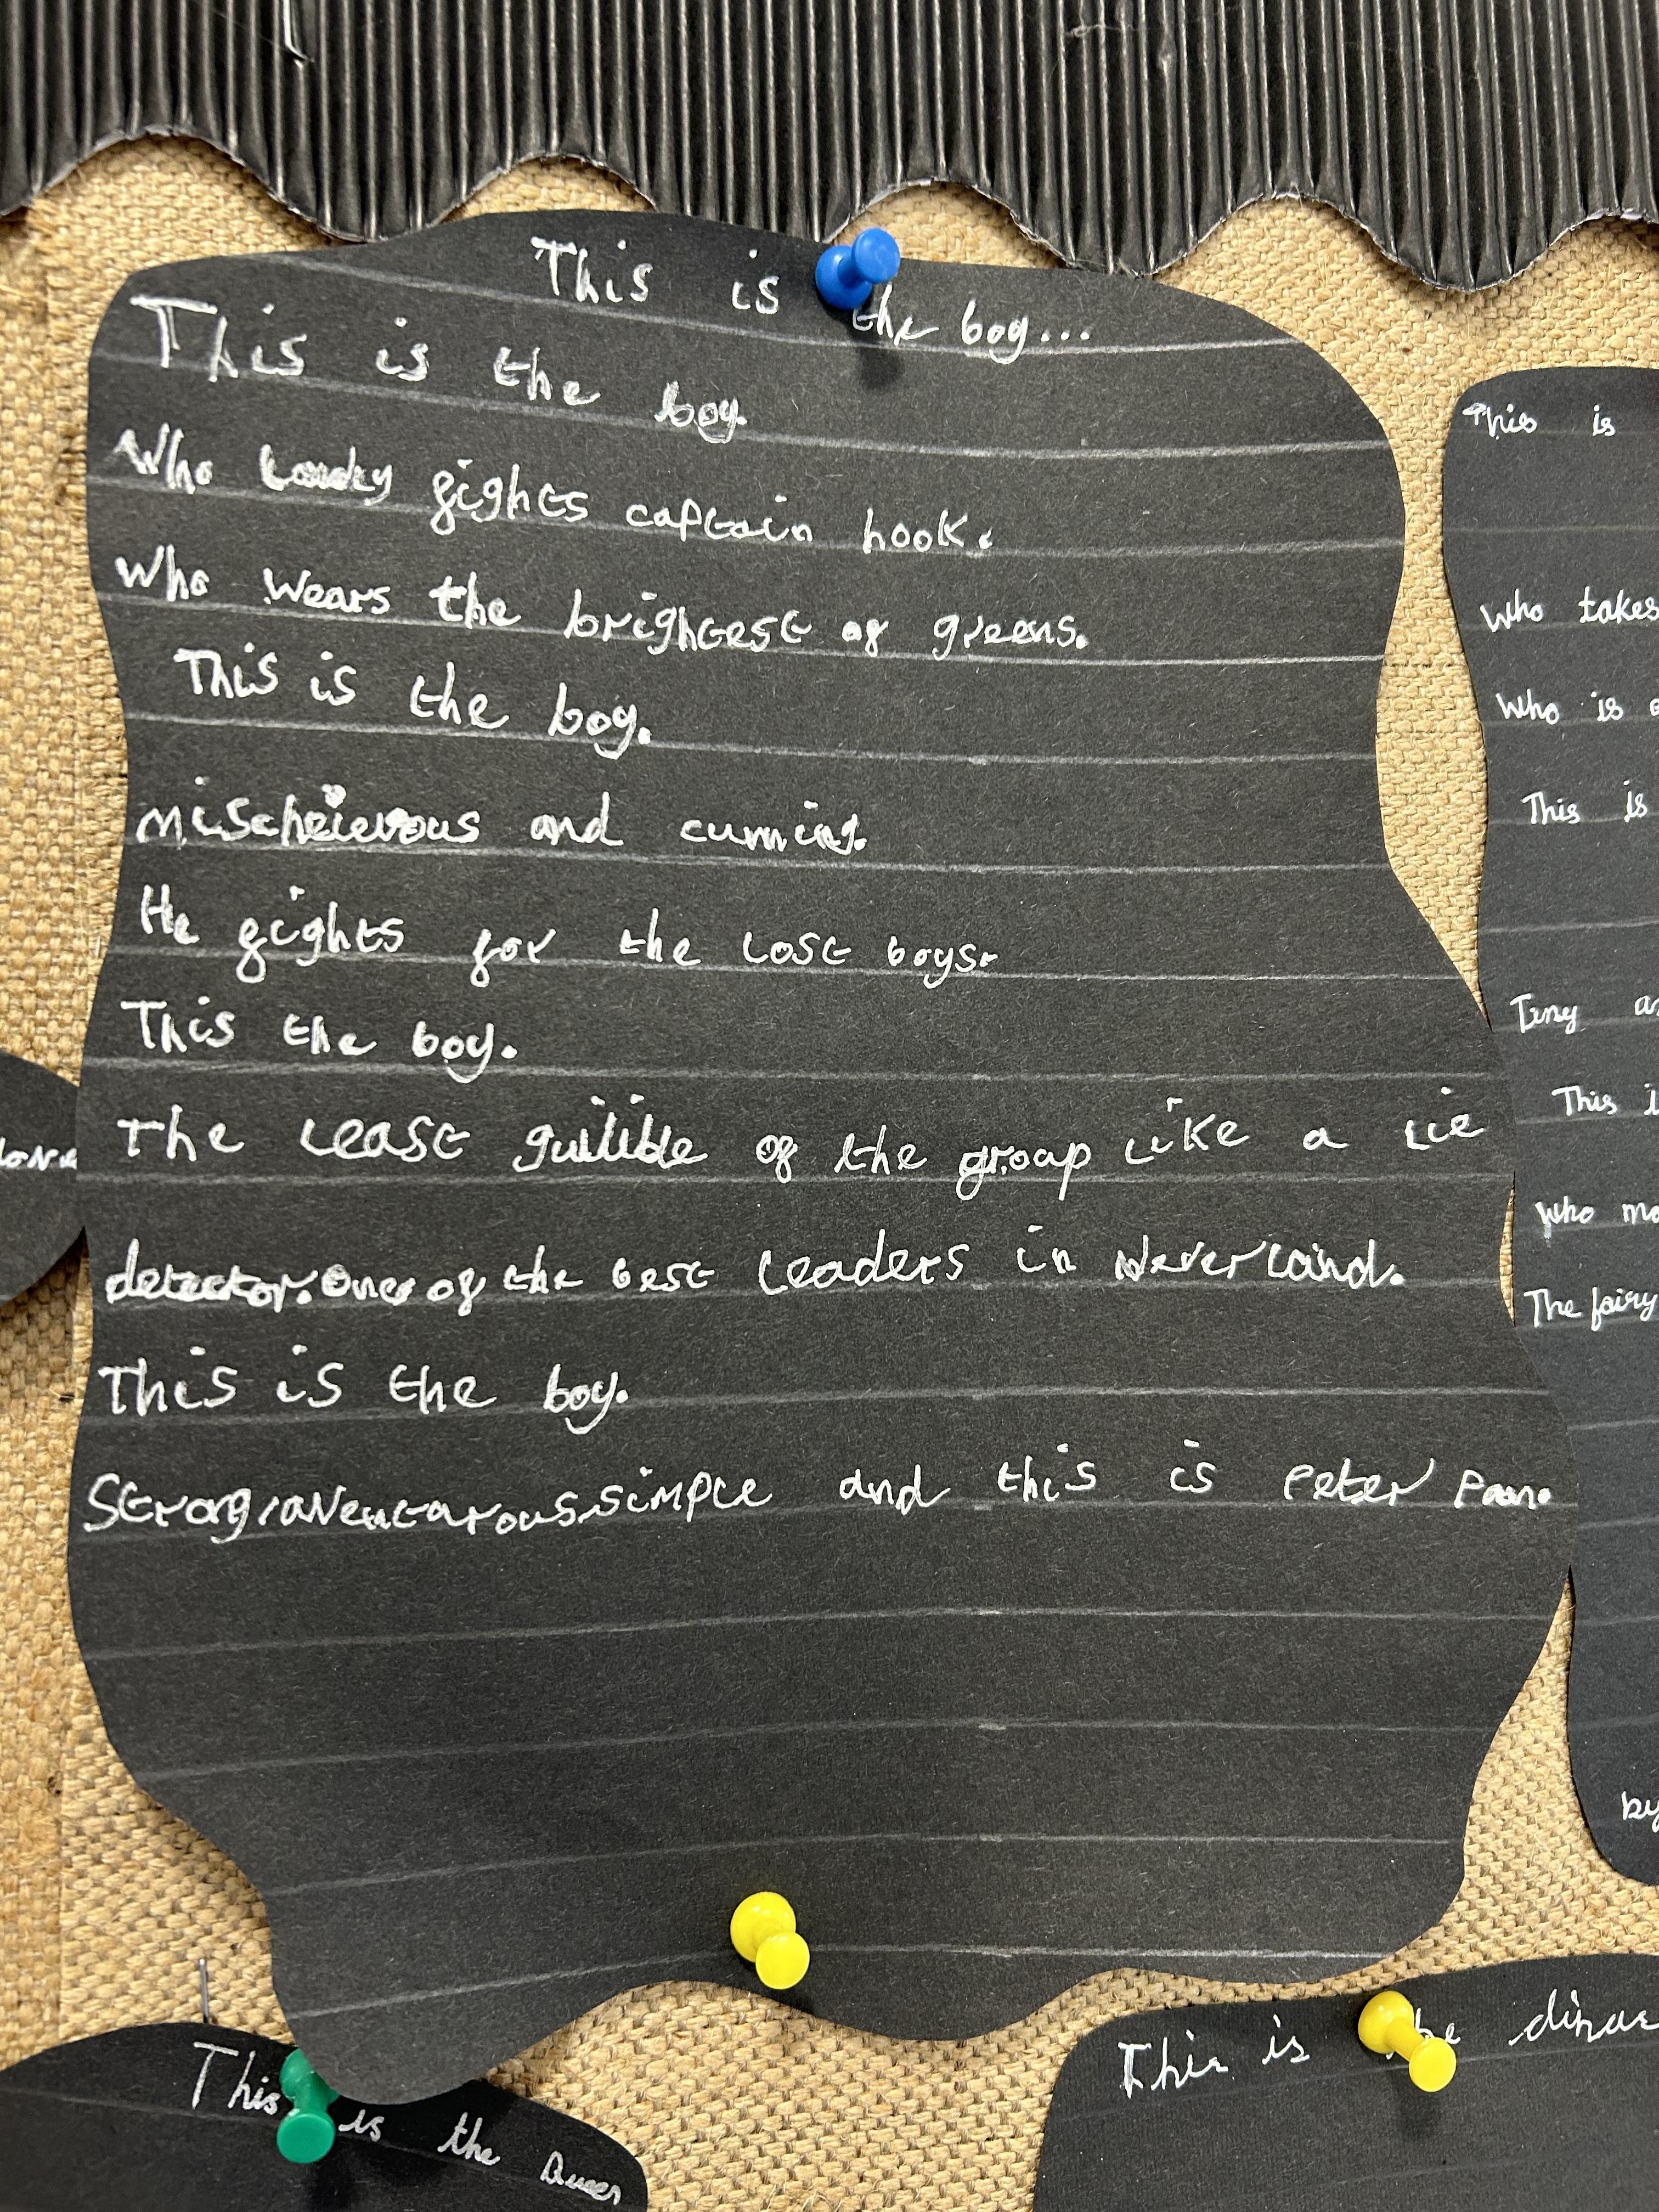 This is the boy...
This is the boy.
Who loudly fights captain hook.
Who wears the brightest of greens.
This is the boy.
mischeievous and cunning.
He fights for the lost boys.
This the boy.
The least gullible of the group like a lie
detector. One of the best leaders in Neverland.
This is the boy.
Strog, aventarous, simple and this is Peter Pan.
This is
Who takes
Who is
This is
Tiny
This i
Who mo
The fairy
by
This is the Queen
This is the dinas